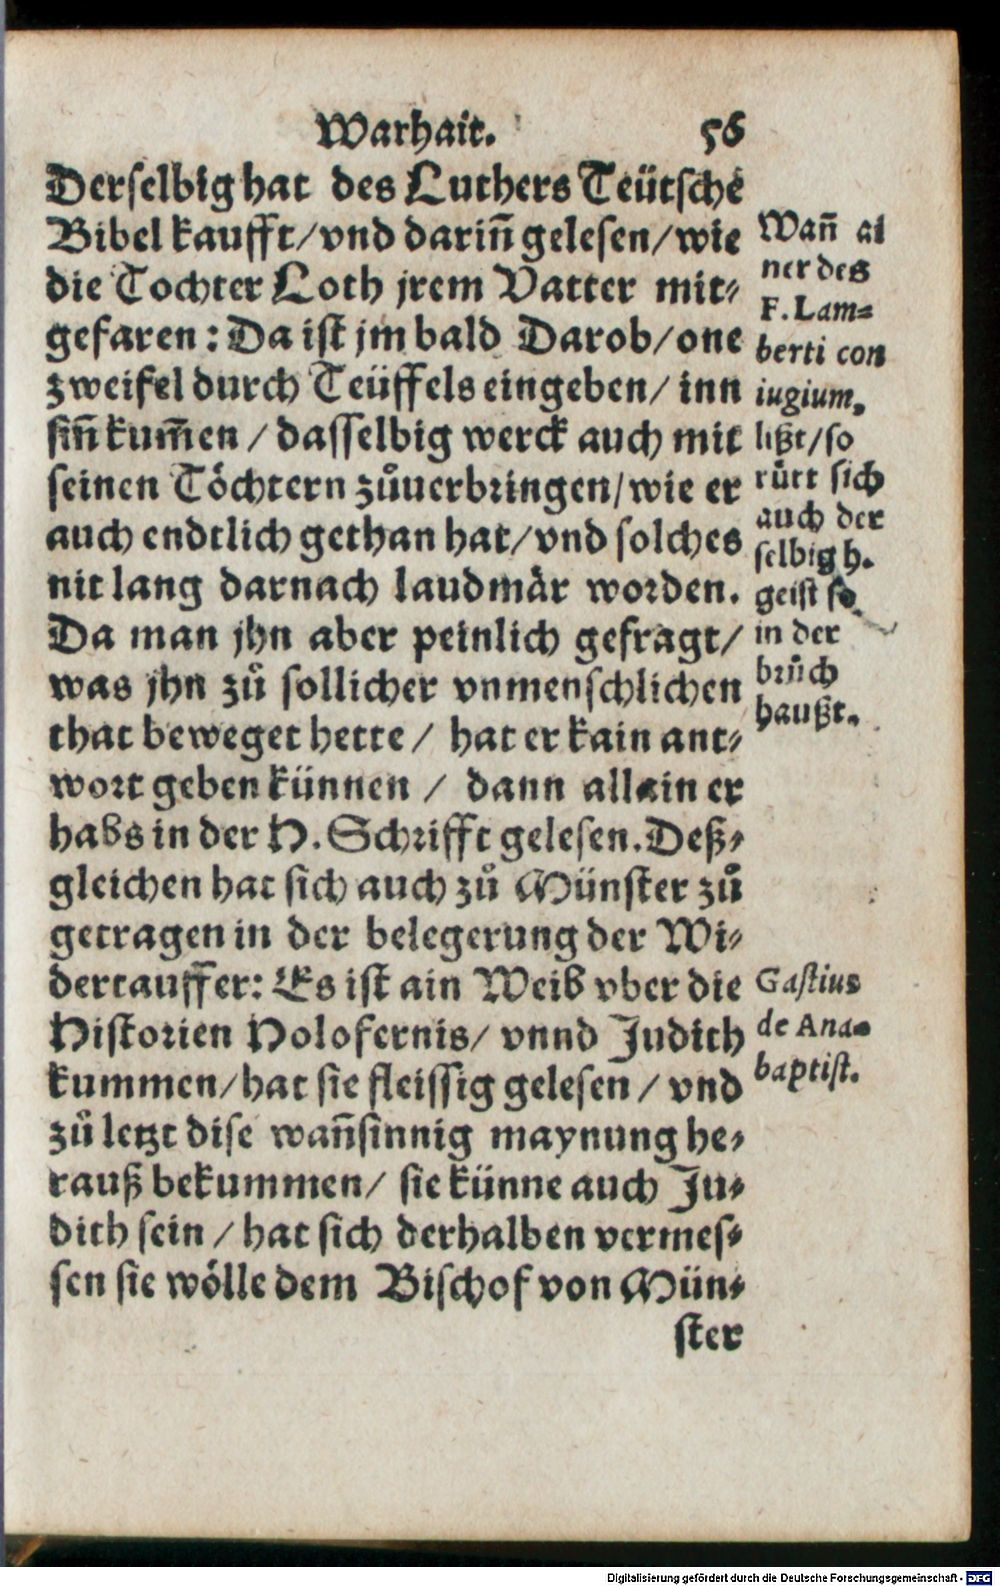 Warhait. 56
Derselbig hat des Luthers Teütsche
Bibel kaufft/vnd dariñ gelesen/wie
die Tochter Loth jrem Vatter mit⸗
gefaren: Da ist jm bald Darob/one
zweifel durch Teüffels eingeben/ inn
siñ kum̃en / dasselbig werck auch mit
seinen Töchtern zůuerbringen/wie er
auch endtlich gethan hat/vnd solches
nit lang darnach laudmär worden.
Da man jhn aber peinlich gefragt/
was jhn zů sollicher vnmenschlichen
that beweget hette / hat er kain ant⸗
wort geben künnen / dann allain er
habs in der H. Schrifft gelesen. Deß⸗
gleichen hat sich auch zů Münster zů
getragen in der belegerung der Wi⸗
dertauffer: Es ist ain Weib vber die
Historien Holofernis/ vnnd Judith
kummen/hat sie fleissig gelesen / vnd
zů letzt dise wañsinnig maynung he⸗
rauß bekummen/ sie künne auch Ju⸗
dith sein / hat sich derhalben vermes⸗
sen sie wölle dem Bischof von Mün⸗
ster
Wañ ai
ner des
F. Lam⸗
berti con
iugium,
lißt/so
rürt sich
auch der
selbig h.
geist so
in der
brůch
haußt.
Gastius
de Ana⸗
baptist.
Digitalisierung gefördert durch die Deutsche Forschungsgemeinschaft - DFG